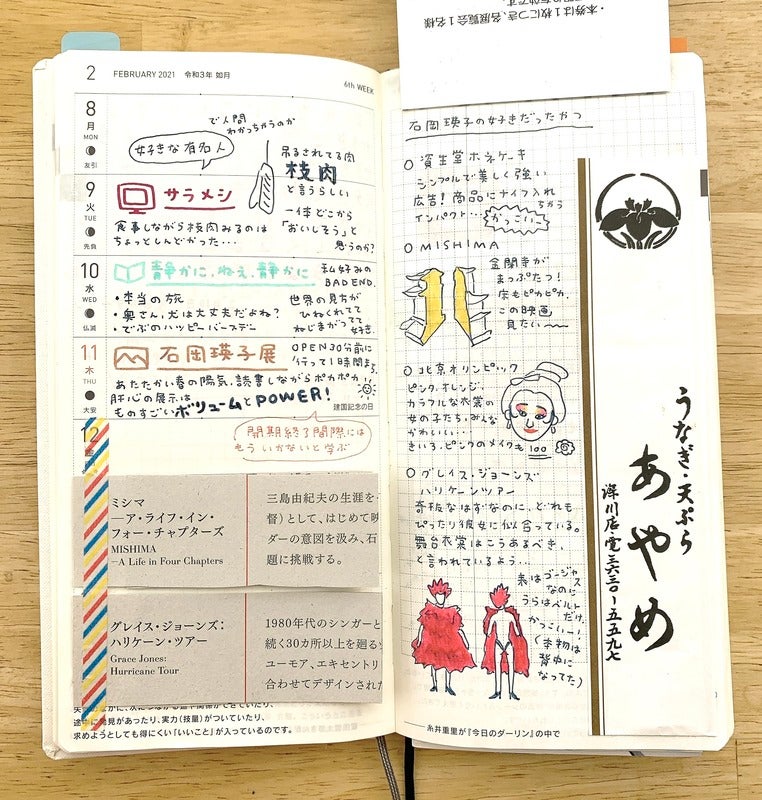 2 FEBRUARY 2021 令和3年 如月
6th WEEK
8
月
MON
友引
で人間
わかっちゃうのか
好きな有名人
吊るされてる肉
枝肉
と言うらしい
一体どこから
「おいしそう」と
思うのか?
9
火
TUE
先負
サラメシ
食事しながら枝肉みるのは
ちょっとしんどかった…
10
水
WED
仏滅
静かに、ねぇ、静かに
・本当の旅
・奥さん、犬は大丈夫だよね?
・でぶのハッピーバースデー
私好みの
BAD END.
世界の見方が
ひねくれてて
ねじまがってて
好き。
11
木
THU
大安
石岡瑛子展
OPEN30分前に
行って1時間まち
あたたかい春の陽気、読書しながらポカポカ
肝心の展示は
ものすごいボリュームとPOWER!
建国記念の日
12
会期終了間際には
もういかないと学ぶ
ミシマ
―ア・ライフ・イン・
フォー・チャプターズ
MISHIMA
–A Life in Four Chapters
三島由紀夫の生涯を
督)として、はじめて映
ダーの意図を汲み、石
題に挑戦する。
グレイス・ジョーンズ:
ハリケーン・ツアー
Grace Jones:
Hurricane Tour
1980年代のシンガーと
続く30カ所以上を廻る
ユーモア、エキセントリ
合わせてデザインされた
途中に発見があったり、実力(技量)がついていたり、
求めようとしても得にくい「いいこと」が入っているのです。
・本券は1枚につき、各展覧会1名様
石岡瑛子の好きだったやつ
○資生堂ホネケーキ
シンプルで美しく強い
広告!商品にナイフ入れちゃう
インパクト…かっこいー
○MISHIMA
金閣寺が
まっぷたつ!
床もピカピカ.
この映画
見たい〜
○北京オリンピック
ピンク、オレンジ、
カラフルな衣裳の
女の子たち、みんな
かわいい…
きいろ、ピンクのメイクも100
○グレイス・ジョーンズ
ハリケーンツアー
奇抜なはずなのに、どれも
ぴったり彼女に似合っている。
舞台衣裳はこうあるべき、
と言われているよう…
表はゴージャス
なのに
うらはベルト
だけ.
かっこいー!
(本物は
背中に
なってた)
糸井重里が『今日のダーリン』の中で
うなぎ・天ぷら
あやめ
深川店・電三六三〇-五五九七